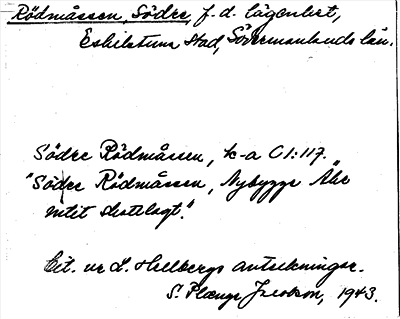 Rödmåssen, Södre, f.d. lägenhet,
Eskilstuna stad, Södermanlands län.
Södre Rödmåssen, k-a C1:117.
"Södre Rödmåssen, Nybygge
intet skattlagt".
Cit. ur L. Hellbergs anteckningar.
S. Plænge Jacobson, 1943.